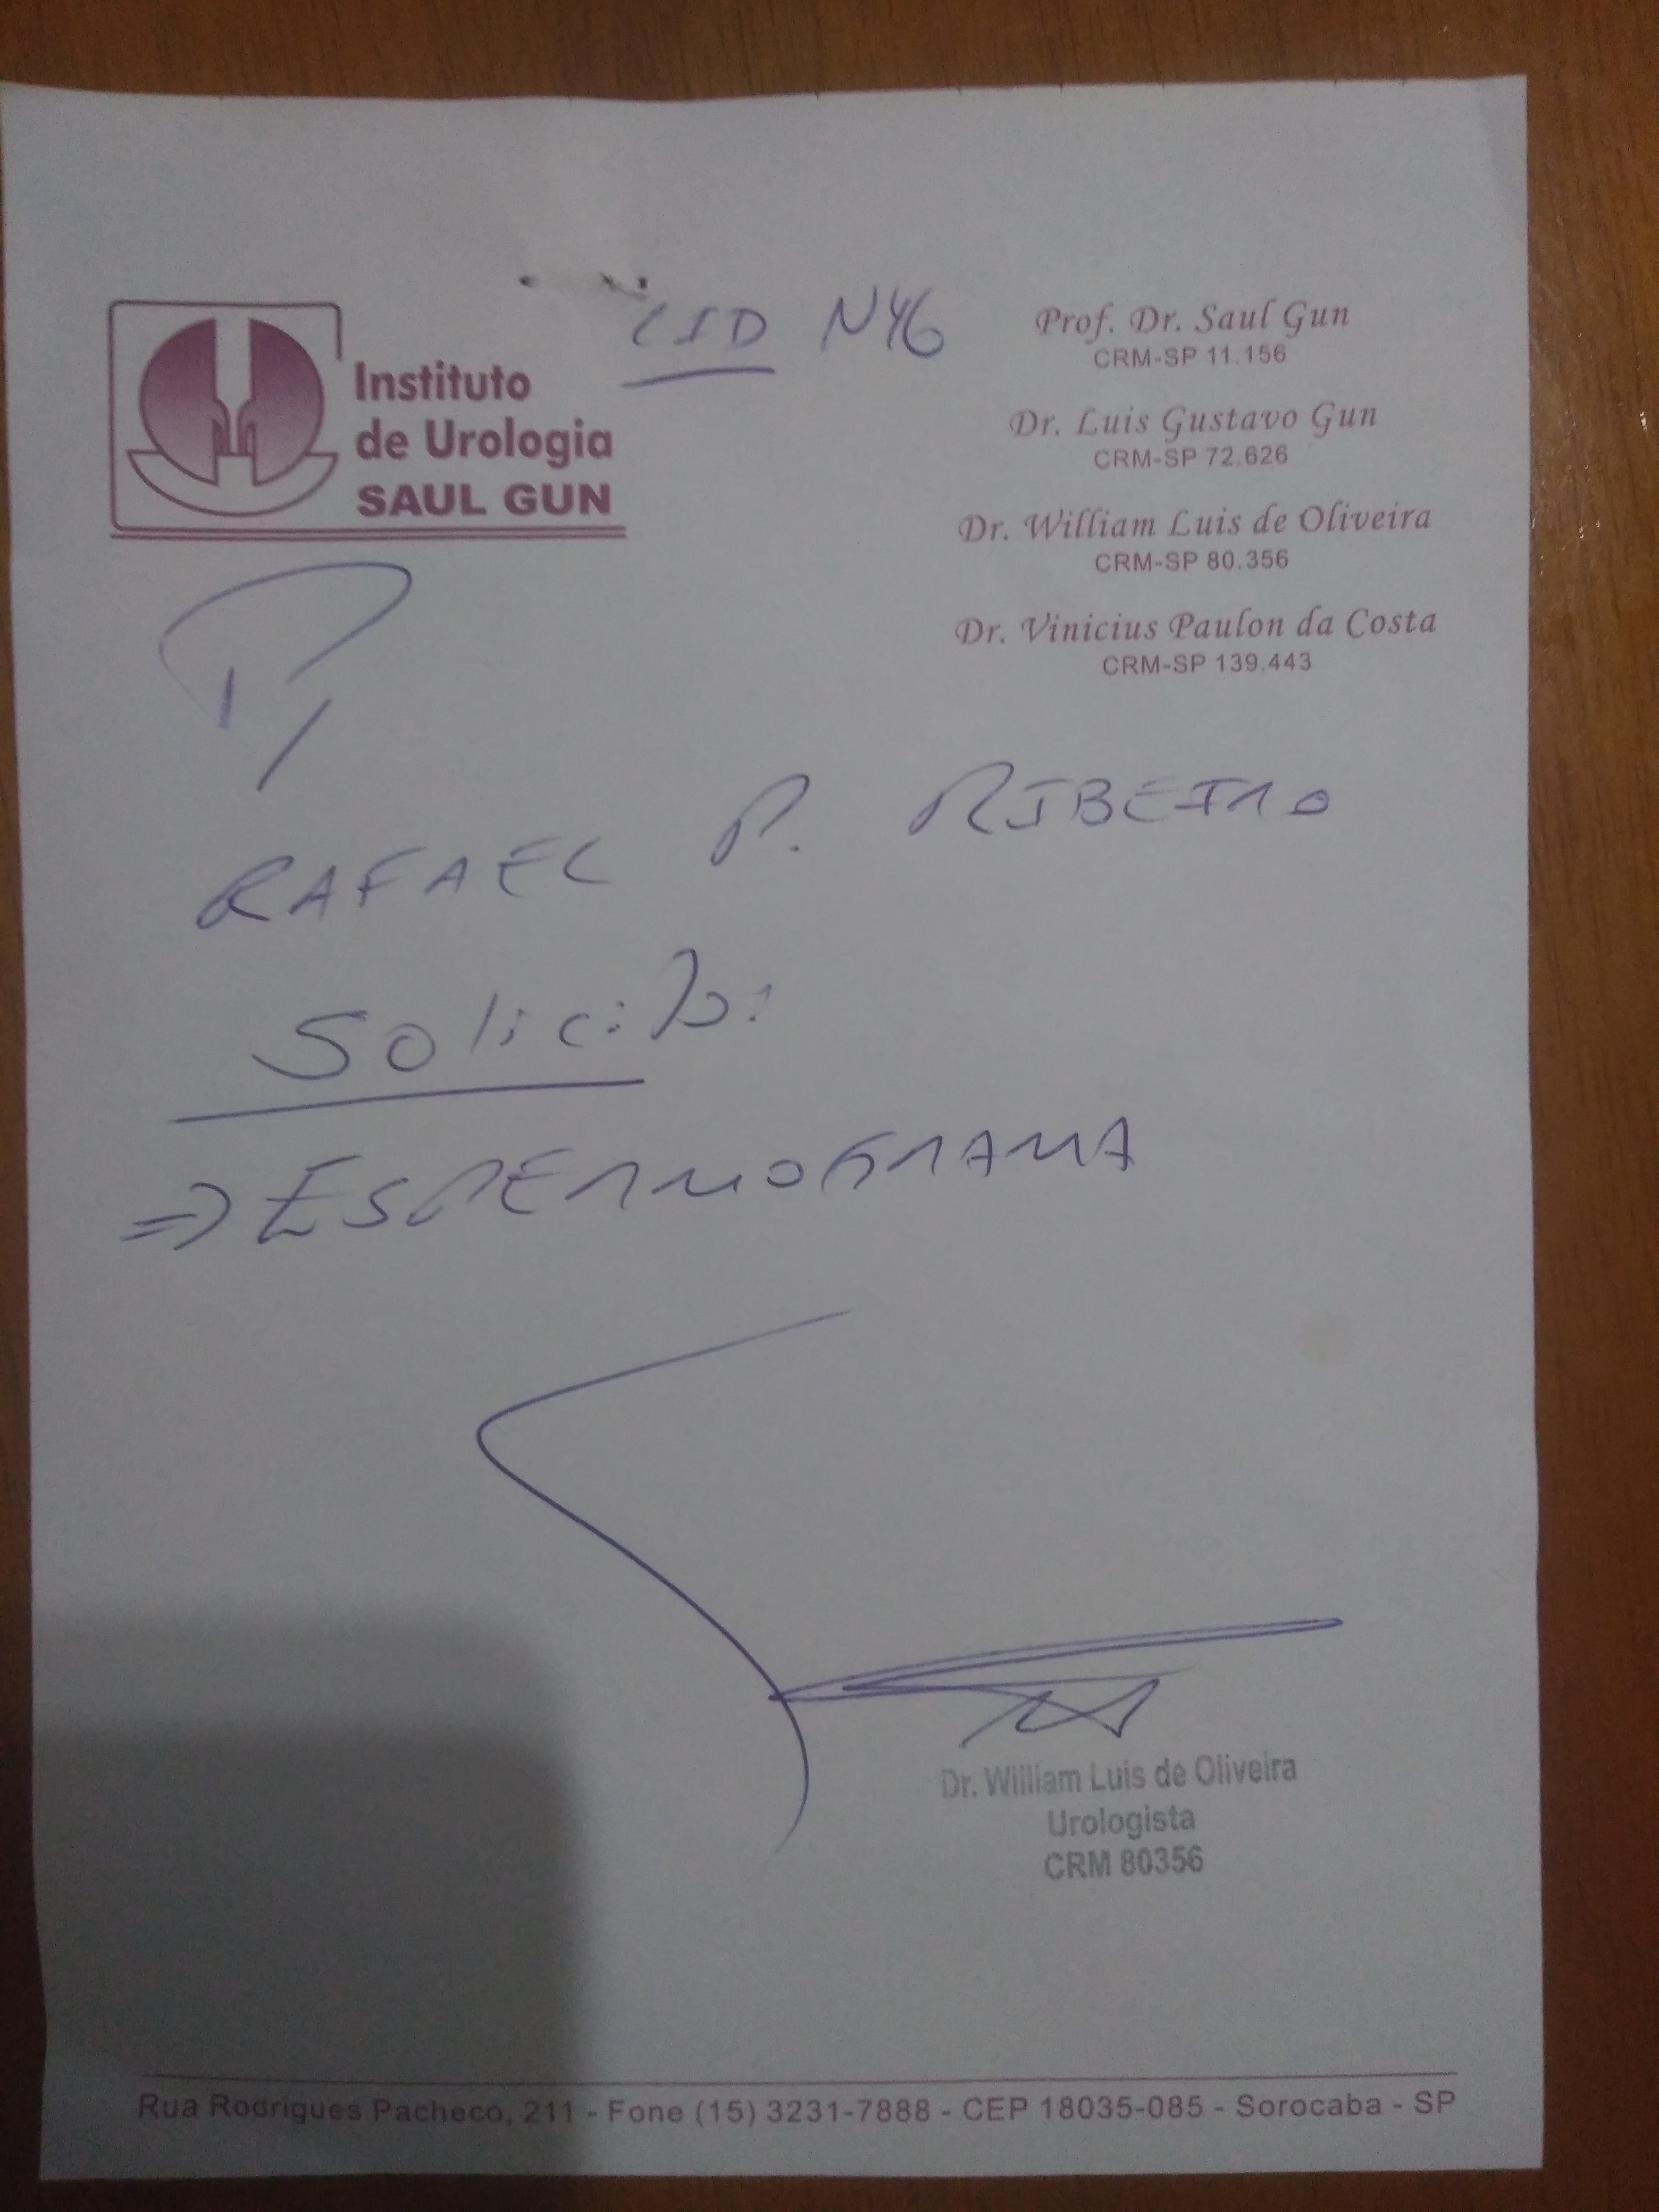 CID N46
Instituto
de Urologia
SAUL GUN
Prof. Dr. Saul Gun
CRM-SP 11.156
Dr. Luis Gustavo Gun
CRM-SP 72.626
Dr. William Luis de Oliveira
CRM-SP 80.356
Dr. Vinicius Paulon da Costa
CRM-SP 139.443
P/
RAFAEL P. RIBEIRO
Solicito:
=> ESPERMOGRAMA
Dr. William Luis de Oliveira
Urologista
CRM 80356
Rua Rodrigues Pacheco, 211 - Fone (15) 3231-7888 - CEP 18035-085 - Sorocaba - SP